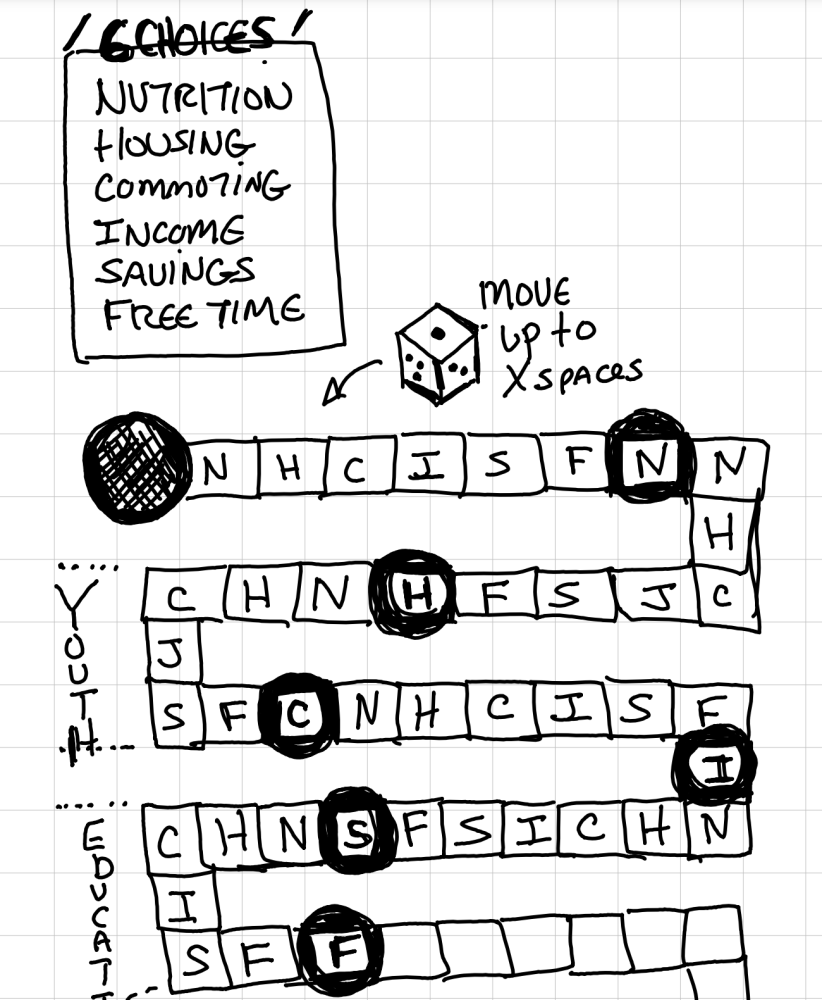 6 CHOICES
NUTRITION
HOUSING
COMMOTING
INCOME
SAVINGS
FREE TIME
MOVE
up to
X SPACES
N H C I S F N N
H
C H N H F S J C
J
S F C N H C I S F
I
C H N S F S I C H N
I
S F F
YOUTH
EDUCATI